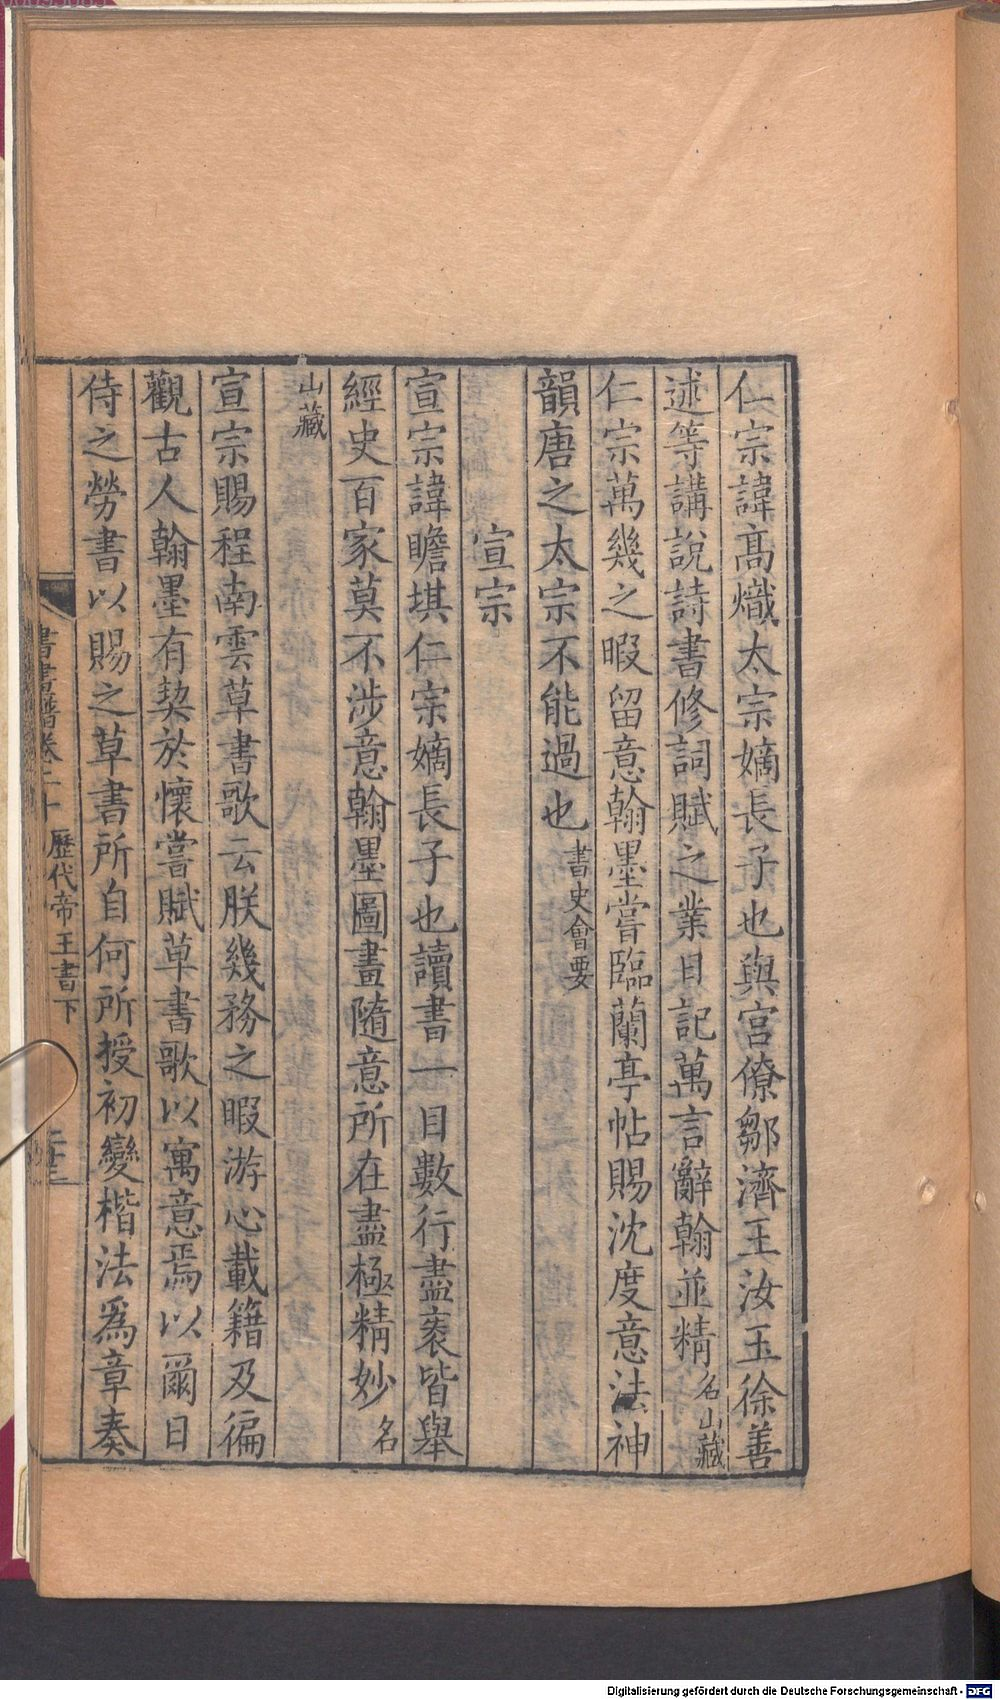 仁宗諱高熾太宗嫡長子也與宮僚鄒濟王汝玉徐善
述等講說詩書修詞賦之業日記萬言辭翰並精名山藏
仁宗萬幾之暇留意翰墨嘗臨蘭亭帖賜沈度意法神
韻唐之太宗不能過也書史會要
宣宗
宣宗諱瞻基仁宗嫡長子也讀書一目數行盡袠皆舉
經史百家莫不涉意翰墨圖畫隨意所在盡極精妙名
山藏
宣宗賜程南雲草書歌云朕幾務之暇游心載籍及徧
觀古人翰墨有契於懷嘗賦草書歌以寓意焉以爾日
侍之勞書以賜之草書所自何所授初變楷法爲章奏
書畫譜卷二十 歷代帝王書下
Digitalisierung gefördert durch die Deutsche Forschungsgemeinschaft - DFG